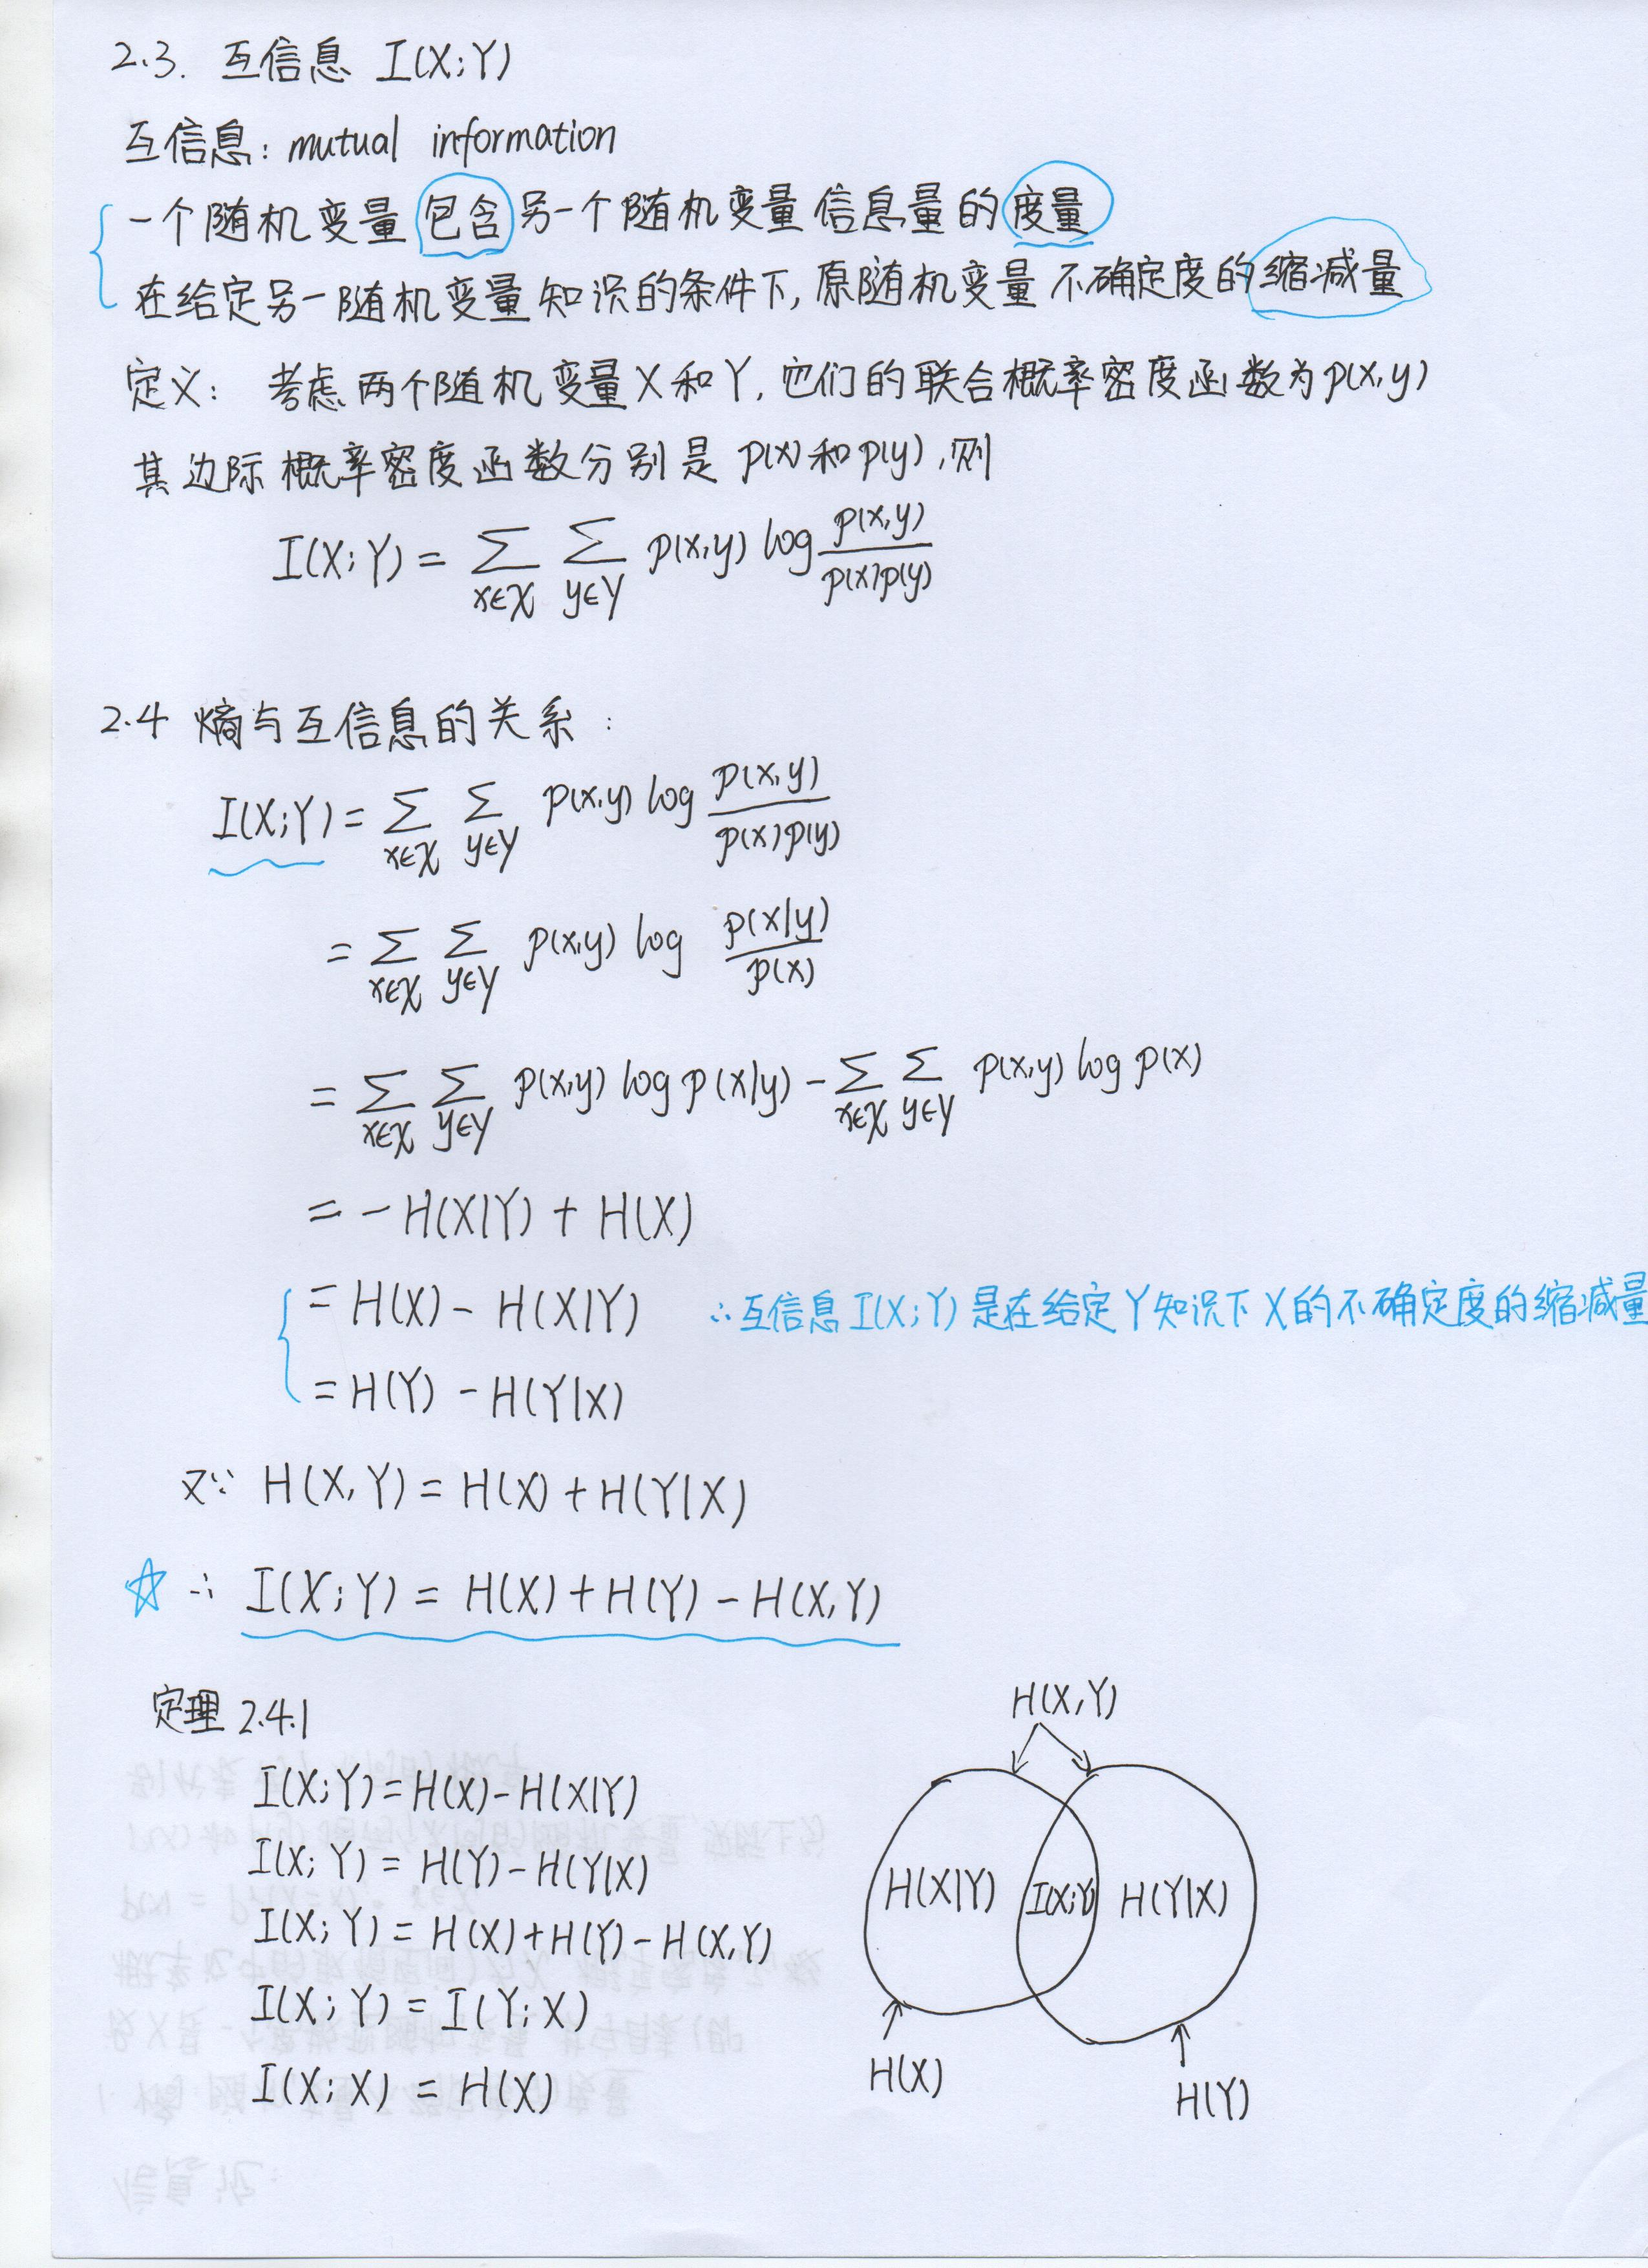 2.3. 互信息 I(X;Y)
互信息: mutual information
一个随机变量包含另一个随机变量信息量的度量
在给定另一随机变量知识的条件下,原随机变量不确定度的缩减量
定义: 考虑两个随机变量X和Y,它们的联合概率密度函数为p(x,y)
其边际概率密度函数分别是p(x)和p(y),则
I(X;Y) = ∑_{x∈X} ∑_{y∈Y} p(x,y) log p(x,y)/p(x)p(y)
2.4 熵与互信息的关系:
I(X;Y) = ∑_{x∈X} ∑_{y∈Y} p(x,y) log p(x,y)/p(x)p(y)
= ∑_{x∈X} ∑_{y∈Y} p(x,y) log p(x|y)/p(x)
= ∑_{x∈X} ∑_{y∈Y} p(x,y) log p(x|y) - ∑_{x∈X} ∑_{y∈Y} p(x,y) log p(x)
= -H(X|Y) + H(X)
= H(X) - H(X|Y) ∴互信息I(X;Y)是在给定Y知识下X的不确定度的缩减量
= H(Y) - H(Y|X)
又∵ H(X,Y) = H(X) + H(Y|X)
☆ ∴ I(X;Y) = H(X) + H(Y) - H(X,Y)
定理 2.4.1
I(X;Y) = H(X) - H(X|Y)
I(X;Y) = H(Y) - H(Y|X)
I(X;Y) = H(X) + H(Y) - H(X,Y)
I(X;Y) = I(Y;X)
I(X;X) = H(X)
H(X,Y)
H(X|Y) I(X;Y) H(Y|X)
H(X)
H(Y)